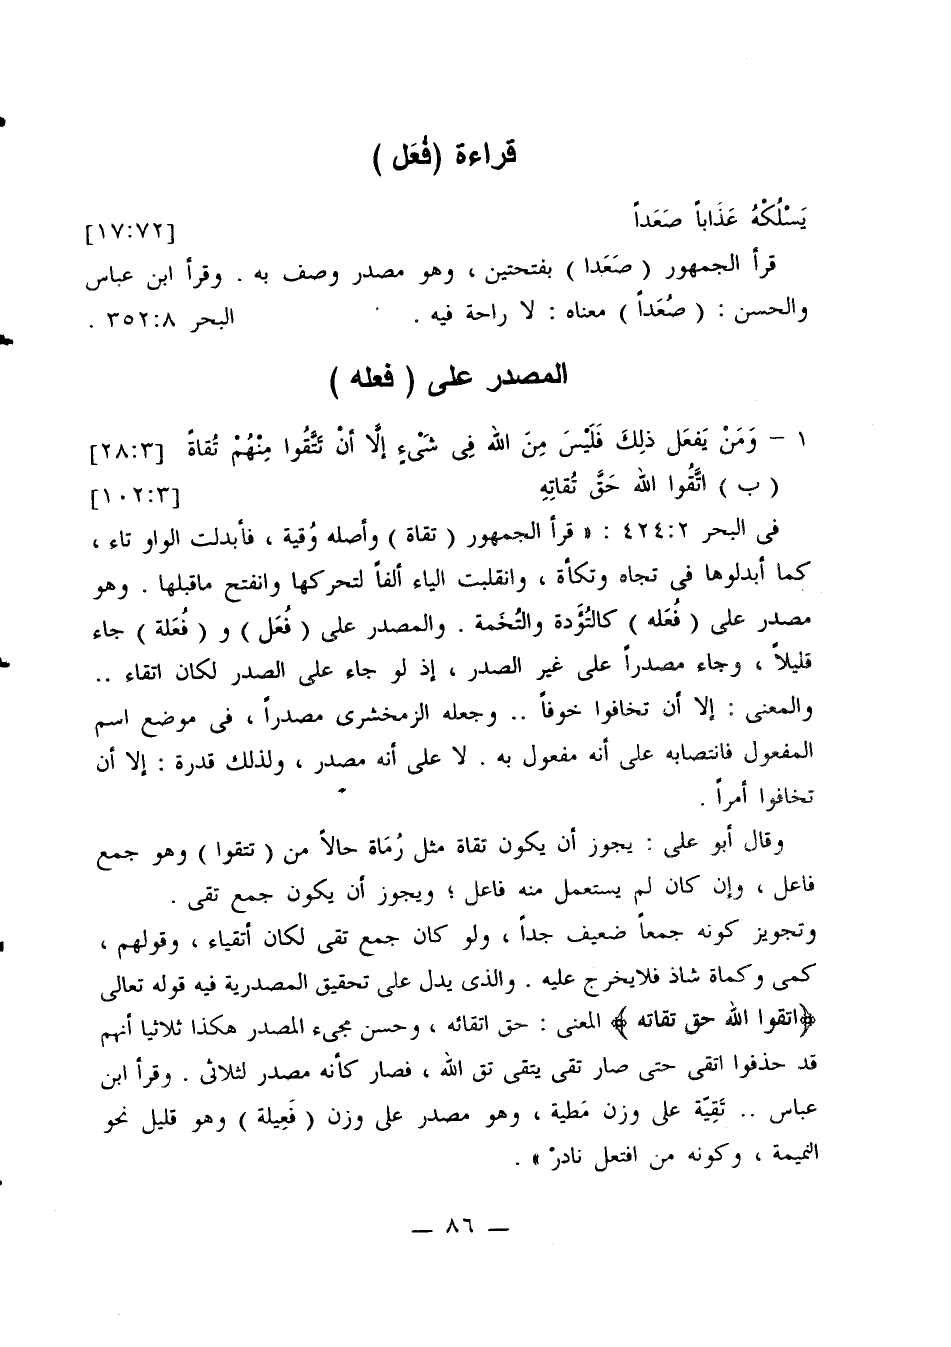 قراءة (فُعَل )
يَسْلُكْهُ عَذَاباً صَعَداً [١٧:٧٢]
قرأ الجمهور ( صَعَدا ) بفتحتين ، وهو مصدر وصف به . وقرأ ابن عباس
والحسن : ( صُعَداً ) معناه : لا راحة فيه . البحر ٣٥٢:٨ .
المصدر على ( فعله )
١ – وَمَنْ يَفعَل ذلِكَ فَلَيْسَ مِنَ اللّه فِى شَىْءٍ إلَّا أنْ تَتَّقُوا مِنْهُمْ تُقاةً [٢٨:٣]
( ب ) اتَّقُوا اللّه حَقَّ تُقاتِهِ [١٠٢:٣]
فى البحر ٤٢٤:٢ : « قرأ الجمهور ( تقاة ) وأصله وُقية ، فأبدلت الواو تاء ،
كما أبدلوها فى تجاه وتكأة ، وانقلبت الياء ألفاً لتحركها وانفتح ماقبلها . وهو
مصدر على ( فُعَله ) كالتُؤَدة والتُخَمة . والمصدر على ( فُعَل ) و ( فُعَلة ) جاء
قليلاً ، وجاء مصدراً على غير الصدر ، إذ لو جاء على الصدر لكان اتقاء ..
والمعنى : إلا أن تخافوا خوفاً .. وجعله الزمخشرى مصدراً ، فى موضع اسم
المفعول فانتصابه على أنه مفعول به . لا على أنه مصدر ، ولذلك قدرة : إلا أن
تخافوا أمراً .
وقال أبو على : يجوز أن يكون تقاة مثل رُمَاة حالاً من ( تتقوا ) وهو جمع
فاعل ، وإن كان لم يستعمل منه فاعل ؛ ويجوز أن يكون جمع تقى .
وتجويز كونه جمعاً ضعيف جداً ، ولو كان جمع تقى لكان أتقياء ، وقولهم ،
كمى وكماة شاذ فلايخرج عليه . والذى يدل على تحقيق المصدرية فيه قوله تعالى
﴿اتقوا اللّه حق تقاته ﴾ المعنى : حق اتقائه ، وحسن مجىء المصدر هكذا ثلاثيا أنهم
قد حذفوا اتقى حتى صار تقى يتقى تق اللّه ، فصار كأنه مصدر لثلاثى . وقرأ ابن
عباس .. تَقِيّة على وزن مَطية ، وهو مصدر على وزن ( فَعِيلة ) وهو قليل نحو
النميمة ، وكونه من افتعل نادرْ » .
— ٨٦ —